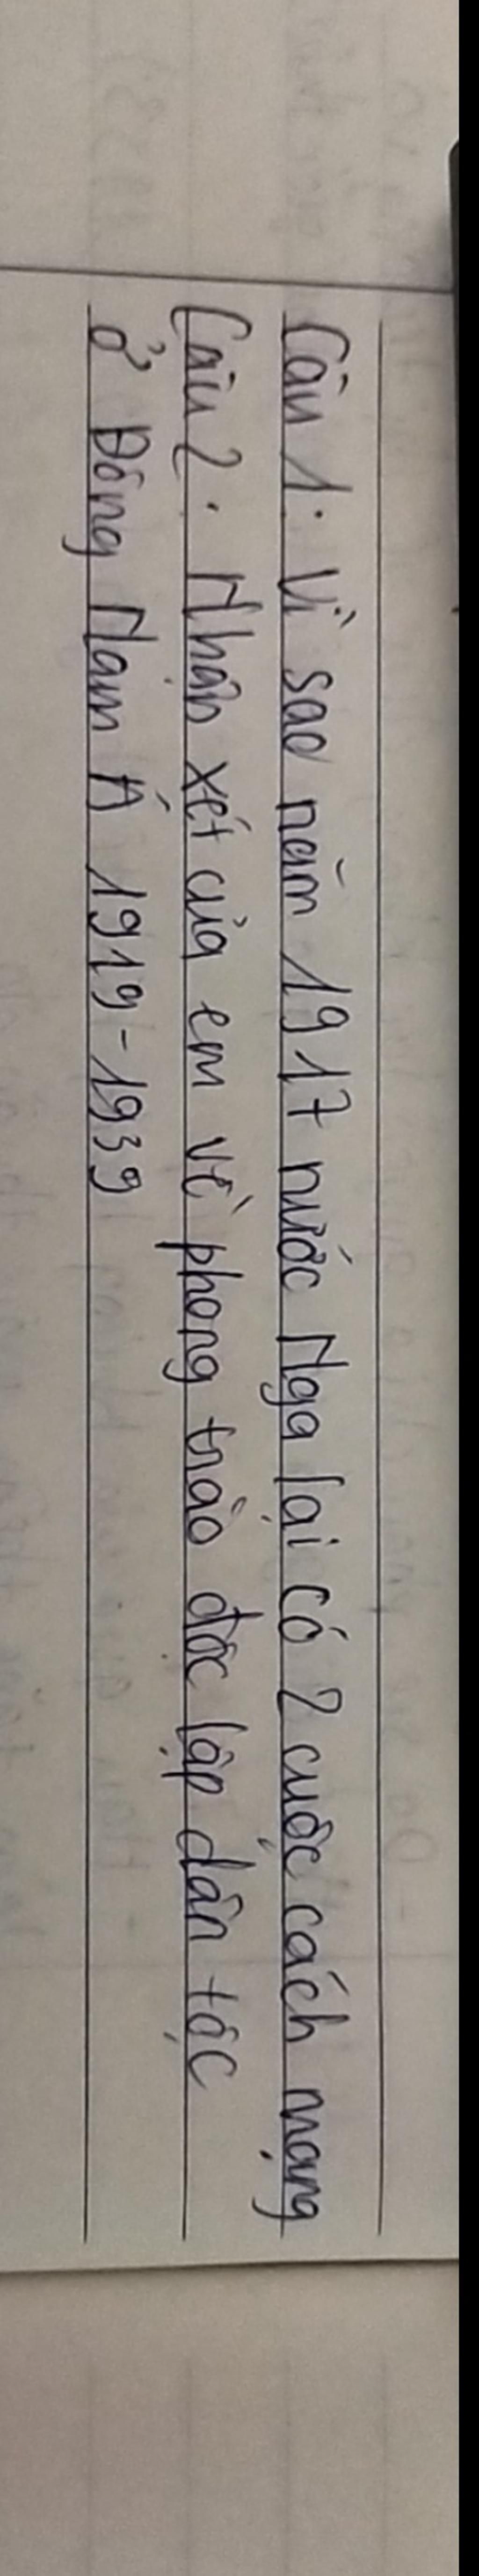 Câu 1: Vì sao năm 1917 nước Nga lại có 2 cuộc cách mạng
Câu 2: Nhận xét của em về phong trào độc lập dân tộc
ở Đông Nam Á 1919-1939